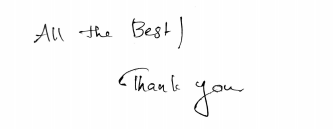 All the Best)
Thank you